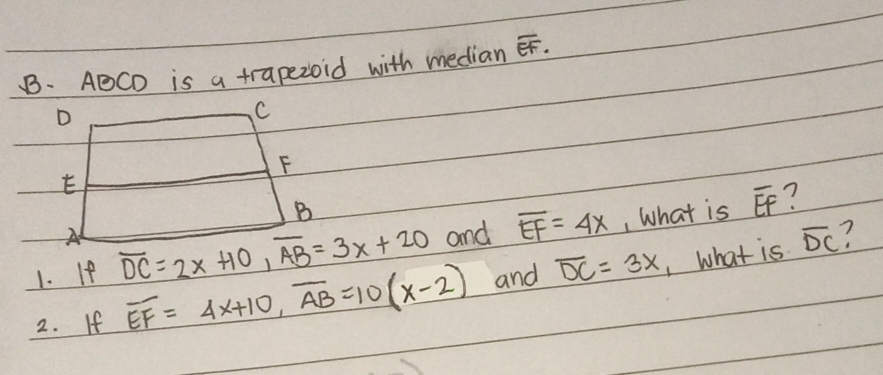 B. ABCD is a trapezoid with median E̅F̅.
D C
E F
A B
1. If D̅C̅ = 2x +10, A̅B̅ = 3x + 20 and E̅F̅ = 4x, what is E̅F̅?
2. If E̅F̅ = 4x+10, A̅B̅ = 10(x-2) and D̅C̅ = 3x, what is D̅C̅?